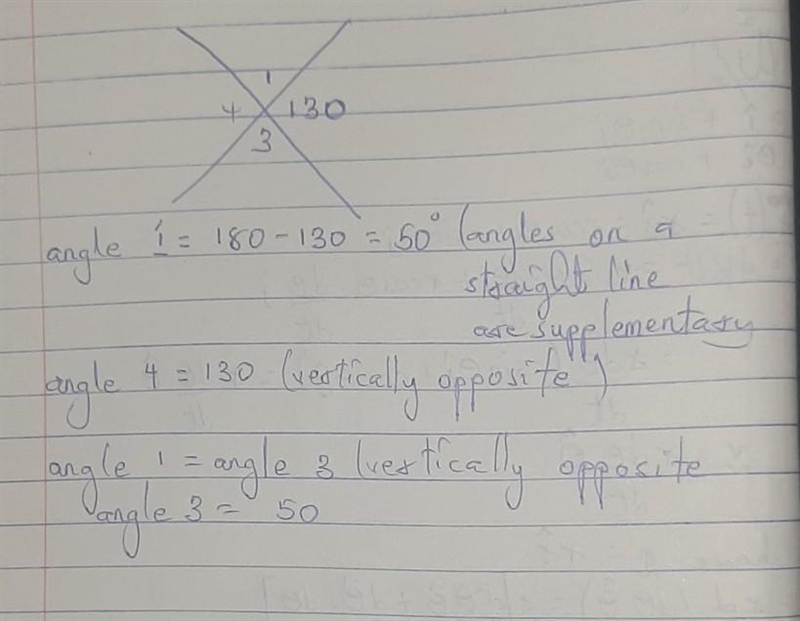 1
4 130
3
angle 1 = 180 - 130 = 50° (angles on a
straight line
are supplementary
angle 4 = 130 (vertically opposite)
angle 1 = angle 3 (vertically opposite
angle 3 = 50